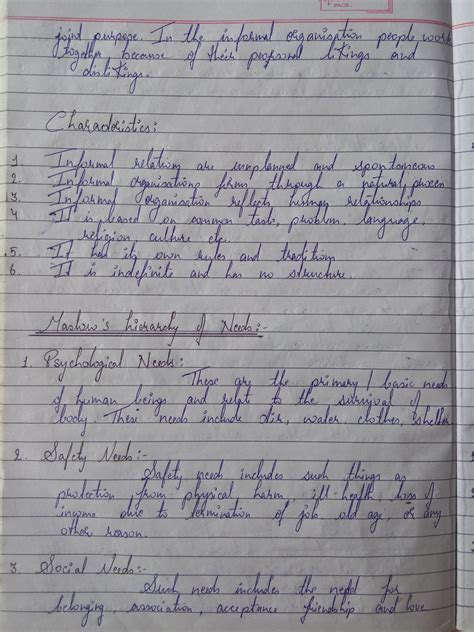 joint purpose. In the informal organisation people work
together because of their personal likings and
dislikings.
Characteristics:
1 Informal relations are unplanned and spontaneous
2. Informal organisations forms through a natural process
3. Informal organisation reflects human relationships
4. It is based on common taste, problem, language,
religion, culture etc.
5. It has its own rules and traditions
6. It is indefinite and has no structure.
Maslow's hierarchy of Needs:-
1. Psychological Needs:
These are the primary / basic needs
of human beings and relat to the survival of
body. These needs include air, water, clothes, shelter
2. Safety Needs:-
Safety need includes such things as
protection from physical harm, ill-health, loss of
income due to termination of job, old age, or any
other reason.
3 Social Needs:-
Such needs includes the need for
belonging, association, acceptance friendship and love